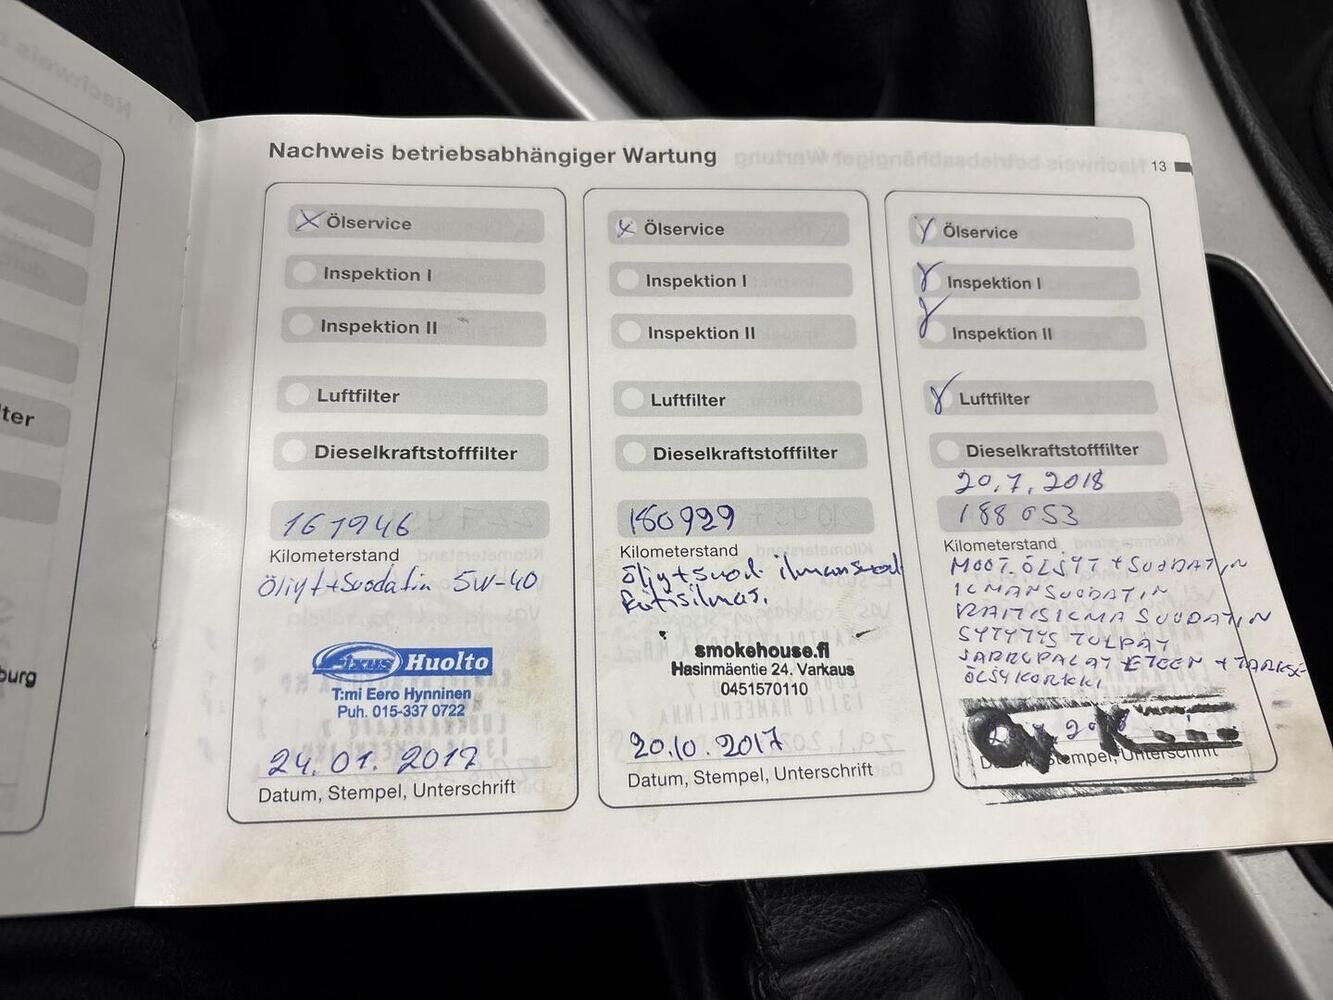 Nachweis betriebsabhängiger Wartung
13
Ölservice
Inspektion I
Inspektion II
Luftfilter
Dieselkraftstofffilter
161946
Kilometerstand
Öliyt+Suodatin 5W-40
Fixus Huolto
T:mi Eero Hynninen
Puh. 015-337 0722
24.01.2017
Datum, Stempel, Unterschrift
Ölservice
Inspektion I
Inspektion II
Luftfilter
Dieselkraftstofffilter
180929
Kilometerstand
Öljyt+suod. ilmansuod
smokehouse.fi
Hasinmäentie 24. Varkaus
0451570110
20.10.2017
Datum, Stempel, Unterschrift
Ölservice
Inspektion I
Inspektion II
Luftfilter
Dieselkraftstofffilter
20.7.2018
188053
Kilometerstand
MOOT.ÖLJYT + SUODATIN
ILMANSUODATIN
RAITISILMA SUODATIN
SYTYTYS TULPAT
JARRUPALAT ETEEN + TAAKSE
ÖLJYKORKKI
Stempel, Unterschrift
ter
burg